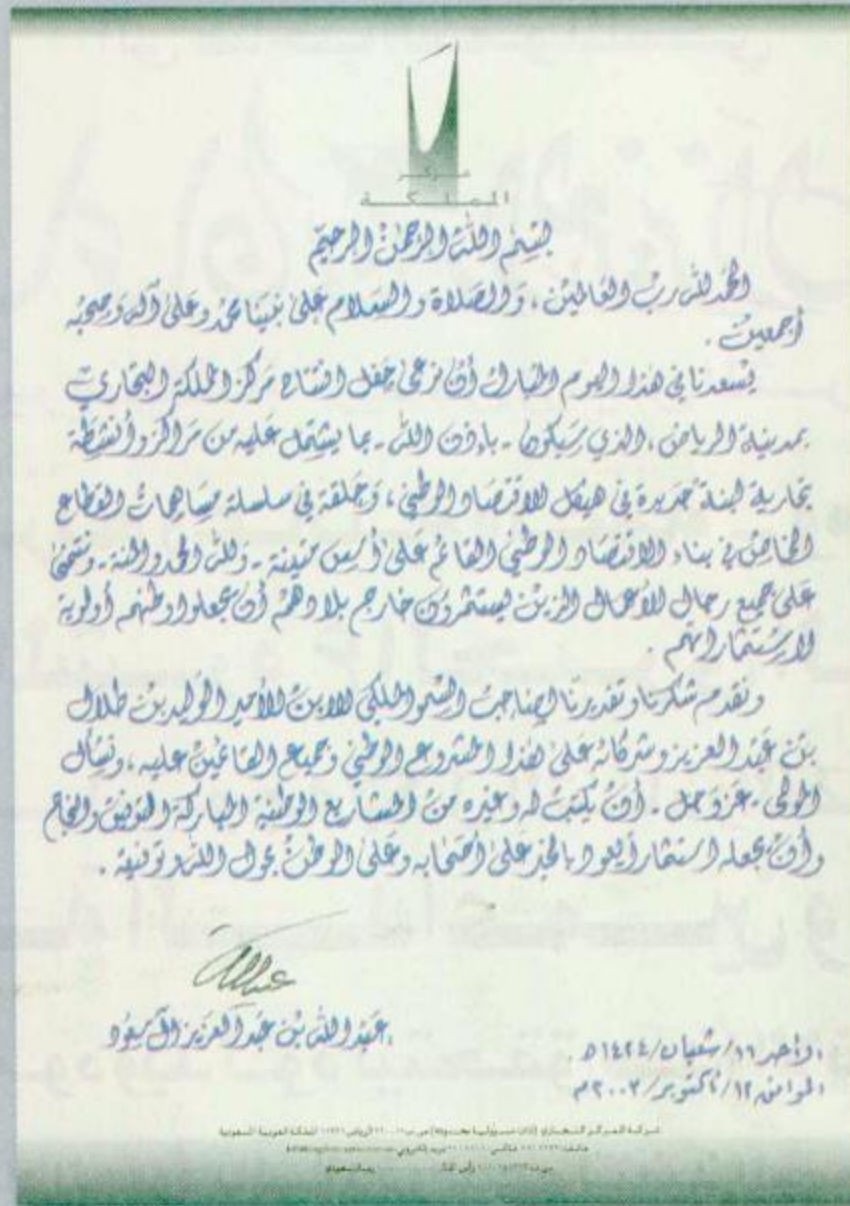 مركز
المملكة
بسم الله الرحمن الرحيم
الحمد لله رب العالمين ، والصلاة والسلام على نبينا محمد وعلى آله وصحبه
أجمعين .
يسعدنا في هذا اليوم المبارك أن نرعى حفل افتتاح مركز المملكة التجاري
بمدينة الرياض ، الذي سيكون - بإذن الله - بما يشتمل عليه من مراكز وأنشطة
تجارية لبنة جديدة في هيكل الاقتصاد الوطني ، وحلقة في سلسلة مساهمات القطاع
الخاص في بناء الاقتصاد الوطني القائم على أسس متينة - ولله الحمد والمنة - ونتمنى
على جميع رجال الأعمال الذين يستثمرون خارج بلادهم أن يجعلوا وطنهم أولوية
لاستثماراتهم .
ونقدم شكرنا وتقديرنا لصاحب السمو الملكي الابن الأمير الوليد بن طلال
بن عبد العزيز وشركائه على هذا المشروع الوطني وجميع القائمين عليه ، ونسأل
المولى - عز وجل - أن يكتب له وغيره من المشاريع الوطنية المباركة التوفيق والنجاح
وأن يجعله استثماراً يعود بالخير على أصحابه وعلى الوطن بحول الله وتوفيقه .
عبدالله
عبد الله بن عبد العزيز آل سعود
الأحد ١٦/شعبان/١٤٢٤ه
الموافق ١٢/أكتوبر/٢٠٠٣م